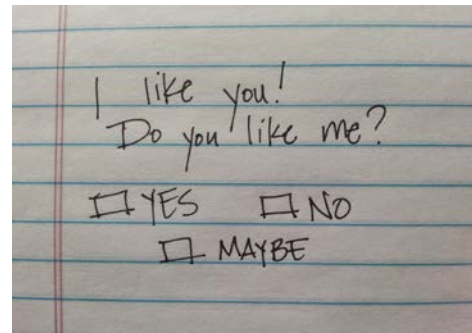 I like you!
Do you like me?
☐ YES ☐ NO
☐ MAYBE